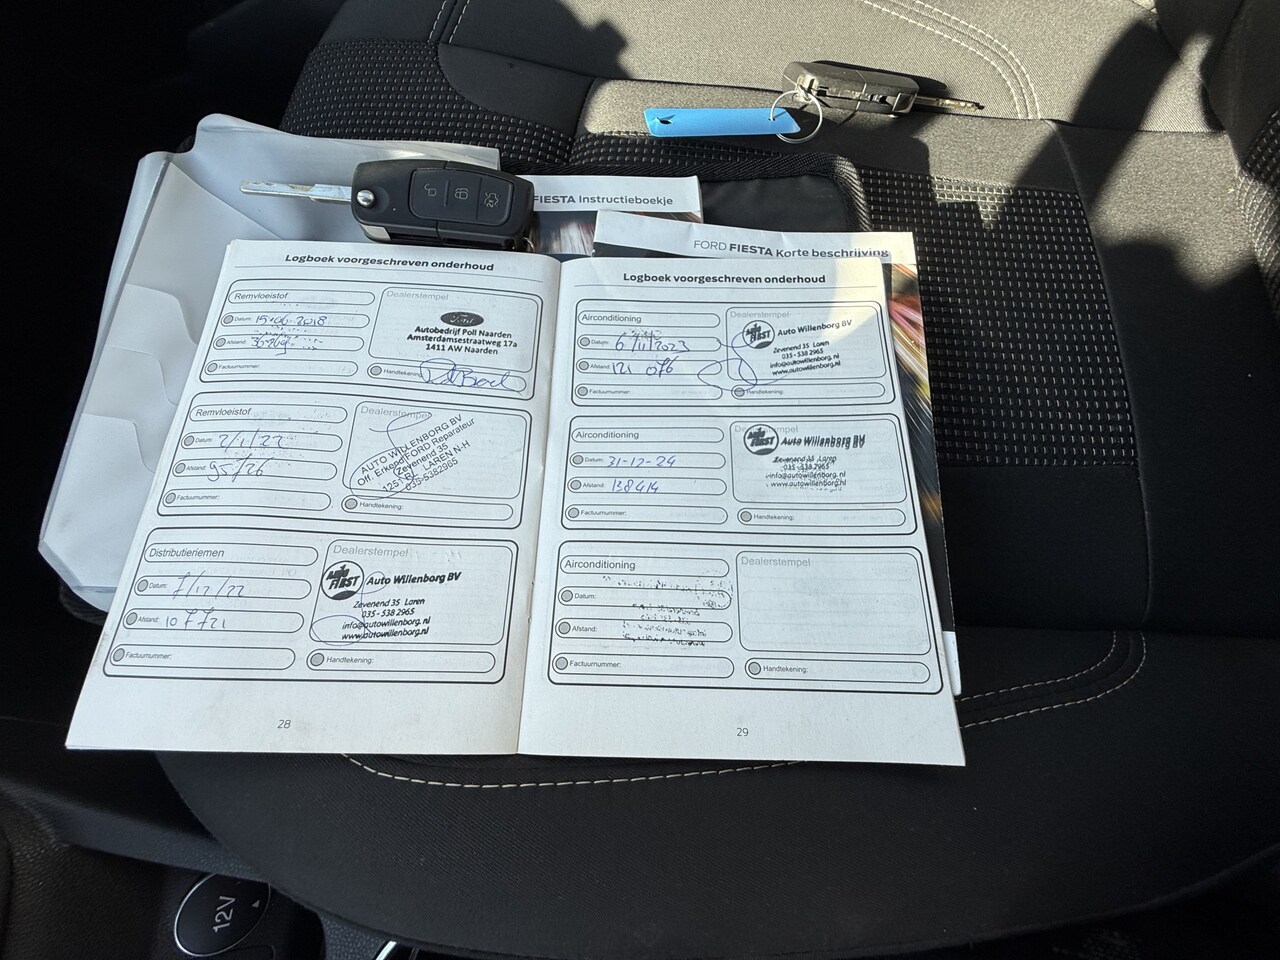 FIESTA Instructieboekje
FORD FIESTA Korte beschrijving
Logboek voorgeschreven onderhoud
Remvloeistof
Datum: 15-06-2018
Afstand:
Factuurnummer:
Dealerstempel
Ford
Autobedrijf Poll Naarden
Amsterdamsestraatweg 17a
1411 AW Naarden
Handtekening:
Remvloeistof
Datum: 2/1/22
Afstand: 95126
Factuurnummer:
Dealerstempel
AUTO WILLENBORG BV
Off. Erkend FORD Reparateur
Zevenend 35
1251 RL LAREN N-H
035-5382965
Handtekening:
Distributieriemen
Datum: 7/12/22
Afstand: 107721
Factuurnummer:
Dealerstempel
AUTO FIRST
Auto Willenborg BV
Zevenend 35 Laren
035 - 538 2965
info@autowillenborg.nl
www.autowillenborg.nl
Handtekening:
28
Logboek voorgeschreven onderhoud
Airconditioning
Datum: 6/11/2023
Afstand: 121 076
Factuurnummer:
Dealerstempel
AUTO FIRST
Auto Willenborg BV
Zevenend 35 Laren
035 - 538 2965
info@autowillenborg.nl
www.autowillenborg.nl
Handtekening:
Airconditioning
Datum: 31-12-24
Afstand: 138414
Factuurnummer:
Dealerstempel
AUTO FIRST
Auto Willenborg BV
Zevenend 35 Laren
035 - 538 2965
info@autowillenborg.nl
www.autowillenborg.nl
Handtekening:
Airconditioning
Datum:
Afstand:
Factuurnummer:
Dealerstempel
Handtekening:
29
12V